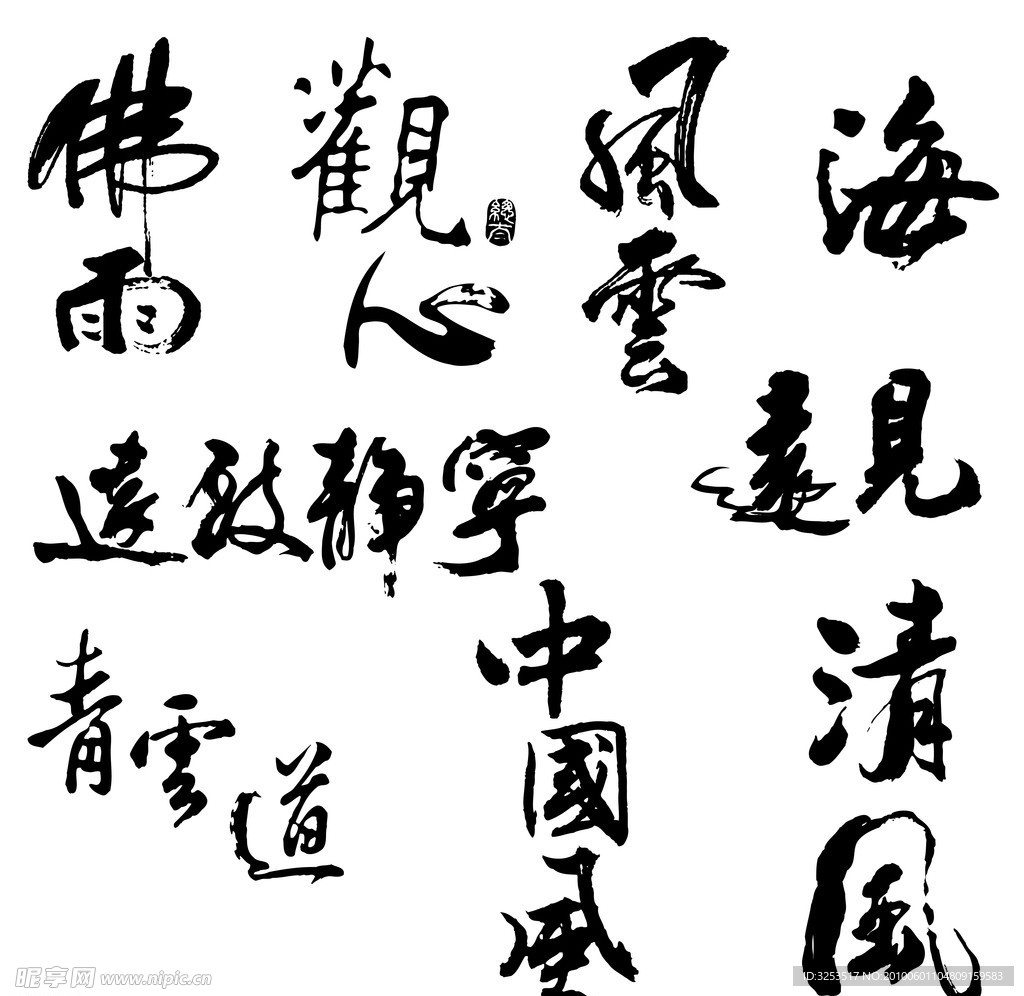 佛雨
觀心
風雲
海
遠見
遠致静寧
青雲道
中國風
清風
昵享网 www.nipic.cn
ID:3253517 NO:20100601104809159583